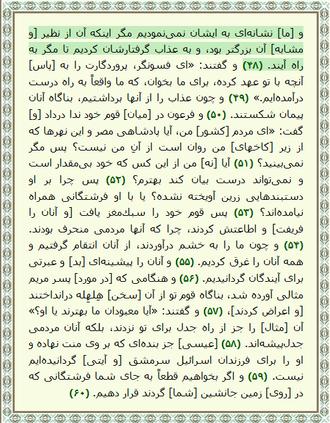 و [ما] نشانه‌ای به ایشان نمی‌نمودیم مگر اینکه آن از نظیر [و
مشابه] آن بزرگتر بود، و به عذاب گرفتارشان کردیم تا مگر به
راه آیند. (۴۸) و گفتند: «ای فسونگر، پروردگارت را به [پاس]
آنچه با تو عهد کرده، برای ما بخوان، که ما واقعاً به راه درست
درآمده‌ایم.» (۴۹) و چون عذاب را از آنها برداشتیم، بناگاه آنان
پیمان شکستند. (۵۰) و فرعون در [میان] قوم خود ندا درداد [و]
گفت: «ای مردم [کشور] من، آیا پادشاهی مصر و این نهرها که
از زیر [کاخهای] من روان است از آنِ من نیست؟ پس مگر
نمی‌بینید؟ (۵۱) آیا [نه] من از این کس که خود بی‌مقدار است
و نمی‌تواند درست بیان کند بهترم؟ (۵۲) پس چرا بر او
دستبندهایی زرین آویخته نشده؟ یا با او فرشتگانی همراه
نیامده‌اند؟ (۵۳) پس قوم خود را سبک‌مغز یافت [و آنان را
فریفت] و اطاعتش کردند، چرا که آنها مردمی منحرف بودند.
(۵۴) و چون ما را به خشم درآوردند، از آنان انتقام گرفتیم و
همه آنان را غرق کردیم. (۵۵) و آنان را پیشینه‌ای [بد] و عبرتی
برای آیندگان گردانیدیم. (۵۶) و هنگامی که [در مورد] پسر مریم
مثالی آورده شد، بناگاه قوم تو از آن [سخن] هلهله درانداختند
[و اعراض کردند]، (۵۷) و گفتند: «آیا معبودان ما بهترند یا او؟»
آن [مثال] را جز از راه جدل برای تو نزدند، بلکه آنان مردمی
جدل‌پیشه‌اند. (۵۸) [عیسی] جز بنده‌ای که بر وی منت نهاده و
او را برای فرزندان اسرائیل سرمشق [و آیتی] گردانیده‌ایم
نیست. (۵۹) و اگر بخواهیم قطعاً به جای شما فرشتگانی که
در [روی] زمین جانشین [شما] گردند قرار دهیم. (۶۰)